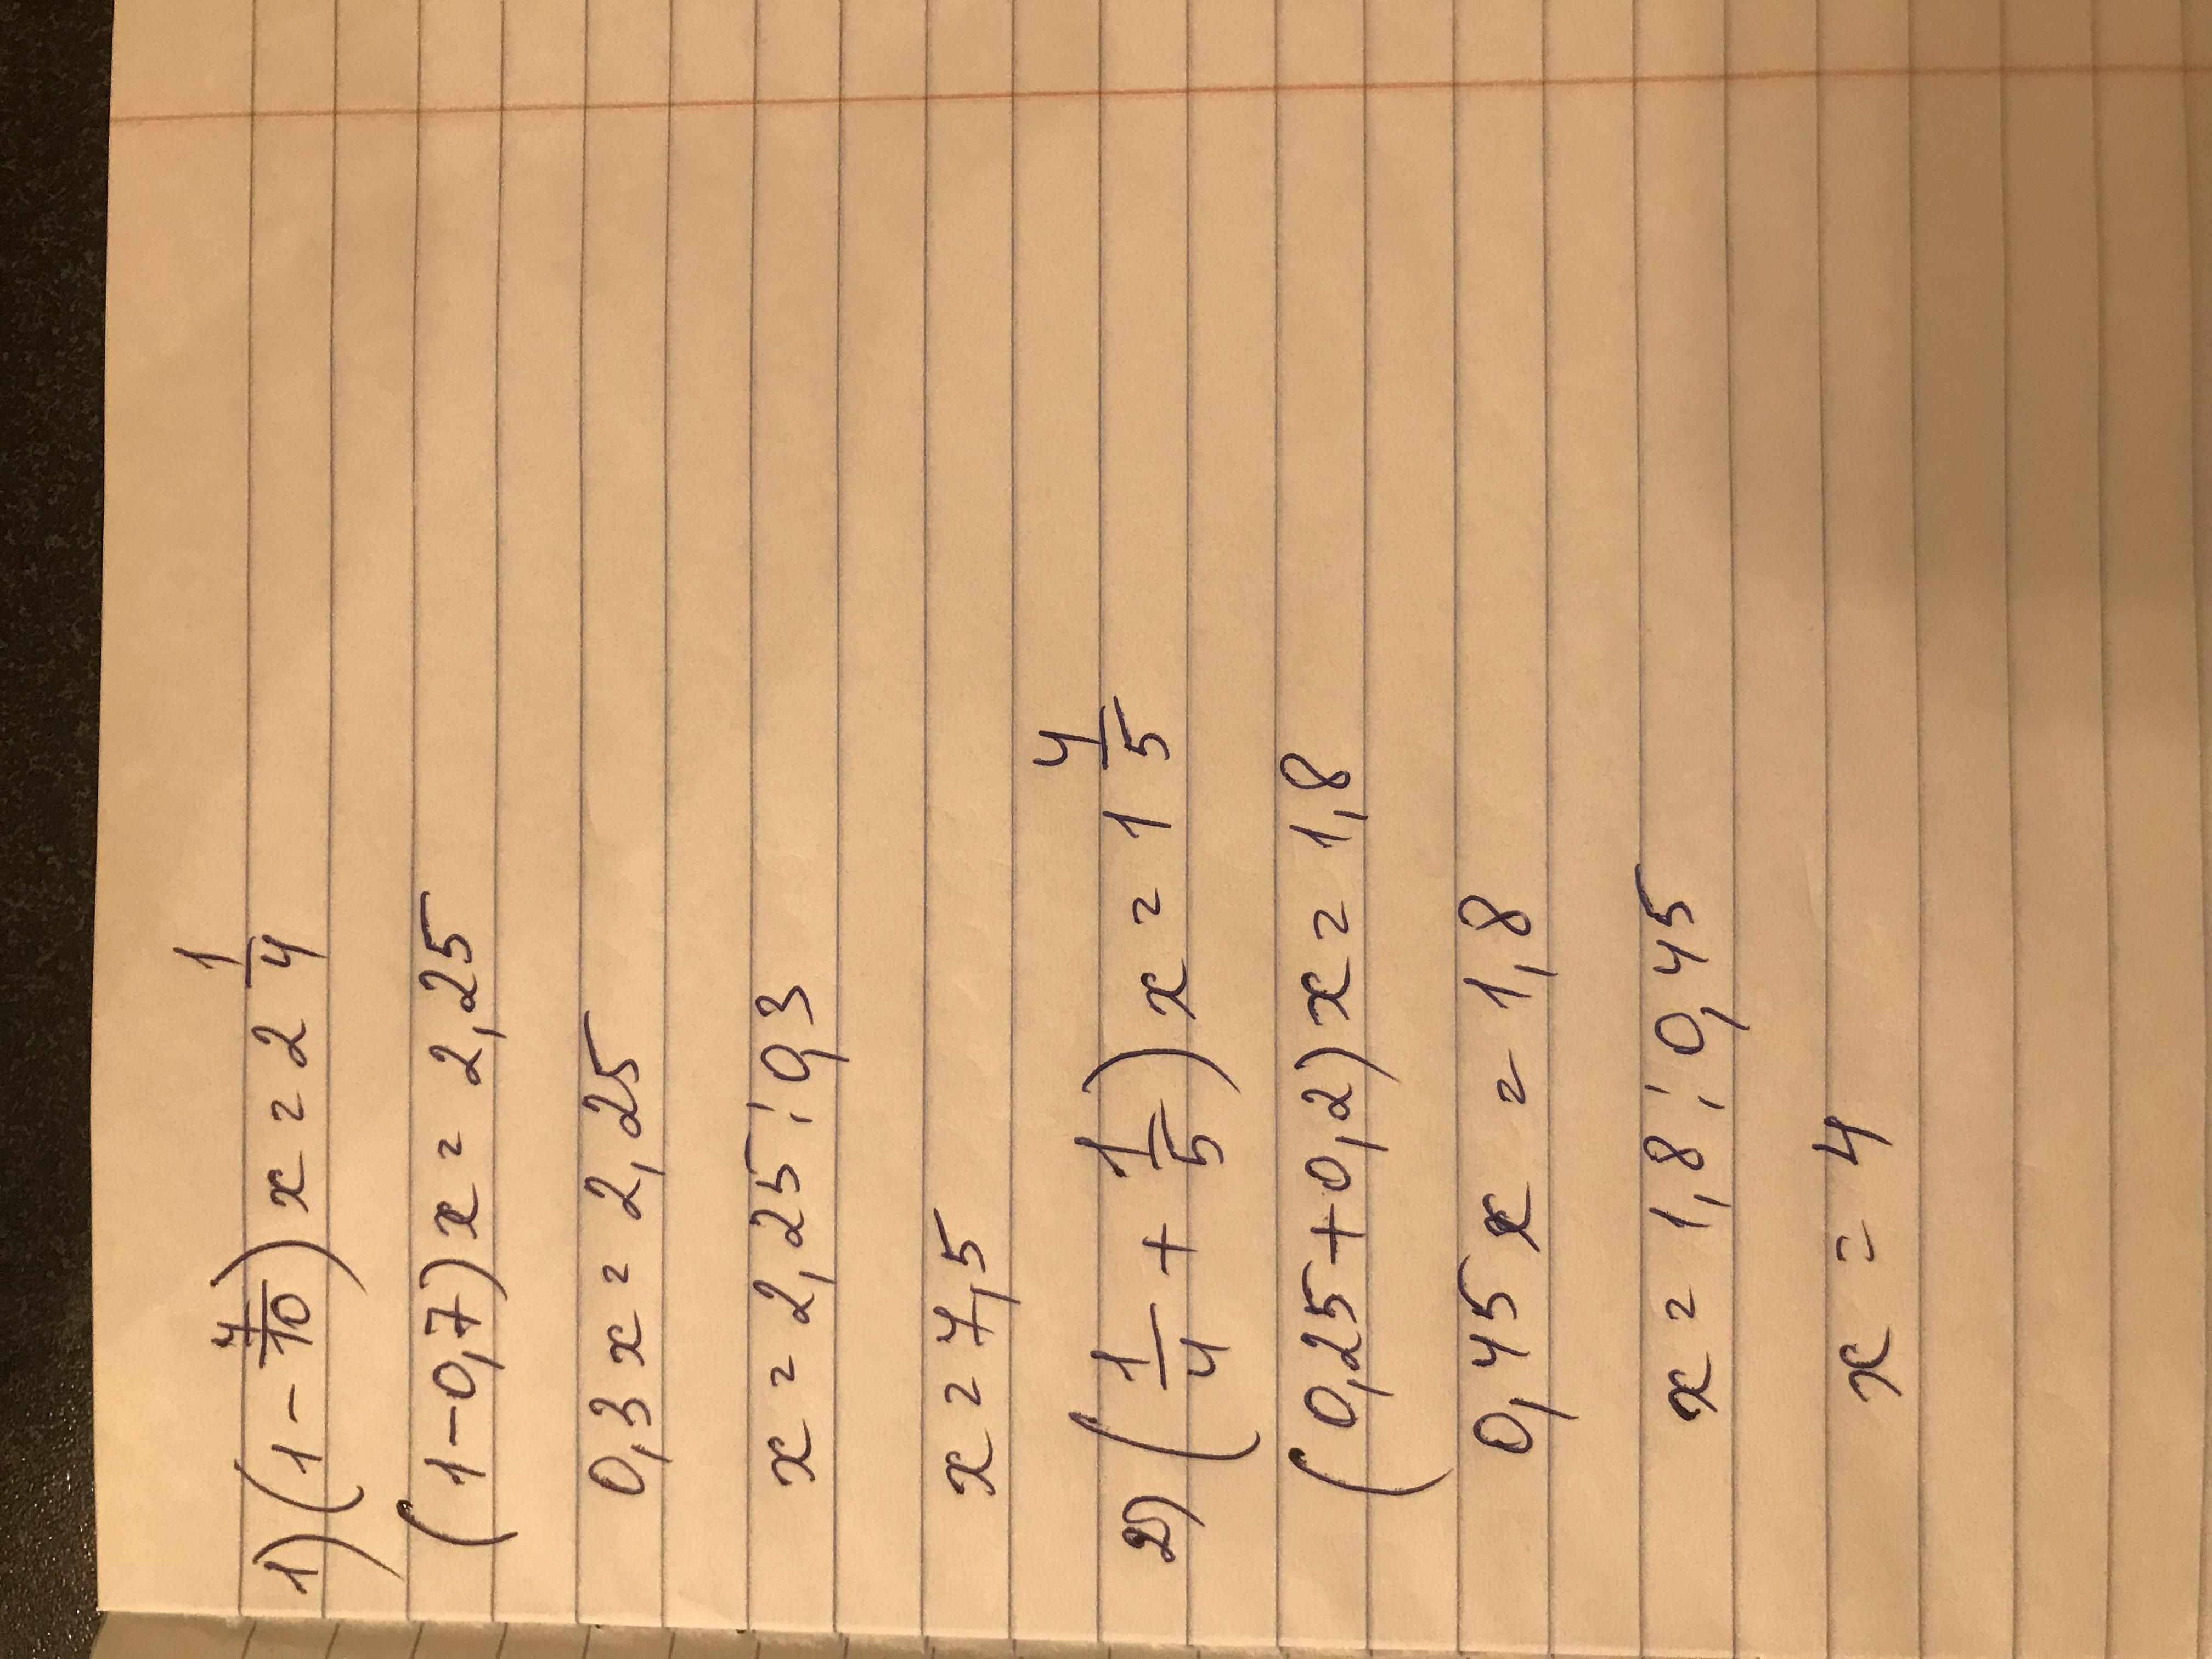 1) (1 - 7/10) x = 2 1/4
(1-0,7) x = 2,25
0,3 x = 2,25
x = 2,25 : 0,3
x = 7,5
2) (1/4 + 1/5) x = 1 4/5
(0,25+0,2) x = 1,8
0,45 x = 1,8
x = 1,8 : 0,45
x = 4